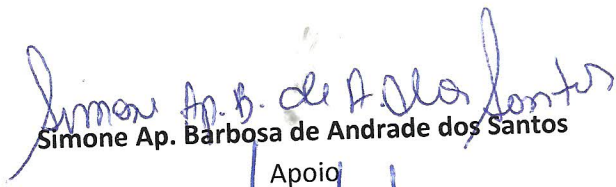 Simone Ap. B. de A. dos Santos
Simone Ap. Barbosa de Andrade dos Santos
Apoio